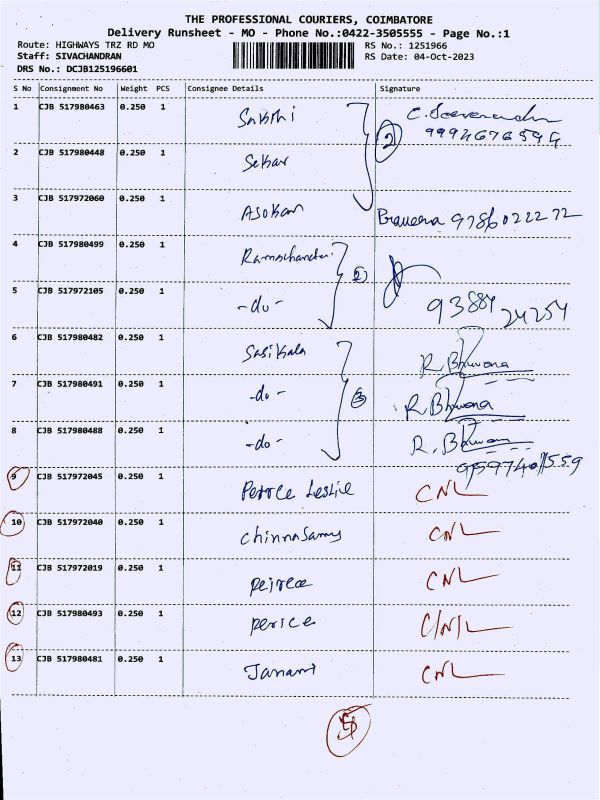 THE PROFESSIONAL COURIERS, COIMBATORE
Delivery Runsheet - MO - Phone No.:0422-3505555 - Page No.:1
Route: HIGHWAYS TRZ RD MO RS No.: 1251966
Staff: SIVACHANDRAN RS Date: 04-Oct-2023
DRS No.: DCJB125196601
S No Consignment No Weight PCS Consignee Details Signature
1 CJB 517980463 0.250 1 Sakthi
9994676594
2 CJB 517980448 0.250 1 Sekar 2
3 CJB 517972060 0.250 1 Asokan Praveena 9786022272
4 CJB 517980499 0.250 1 Ramachandran 2
5 CJB 517972105 0.250 1 -do- 93884 24254
6 CJB 517980482 0.250 1 Sasikala R. Bhuvana
7 CJB 517980491 0.250 1 -do- 3 R. Bhuvana
8 CJB 517980488 0.250 1 -do- R. Bhuvana
9 CJB 517972045 0.250 1 Peirce Leslie CNL
10 CJB 517972040 0.250 1 Chinnasamy CNL
11 CJB 517972019 0.250 1 Peirce CNL
12 CJB 517980493 0.250 1 perice CNL
13 CJB 517980481 0.250 1 Janani CNL
5